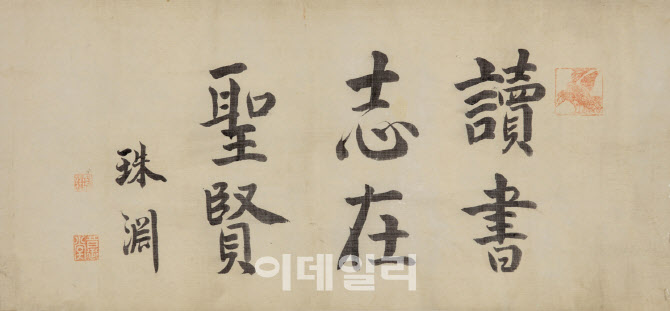 讀書
志在
聖賢
珠淵
이데일리